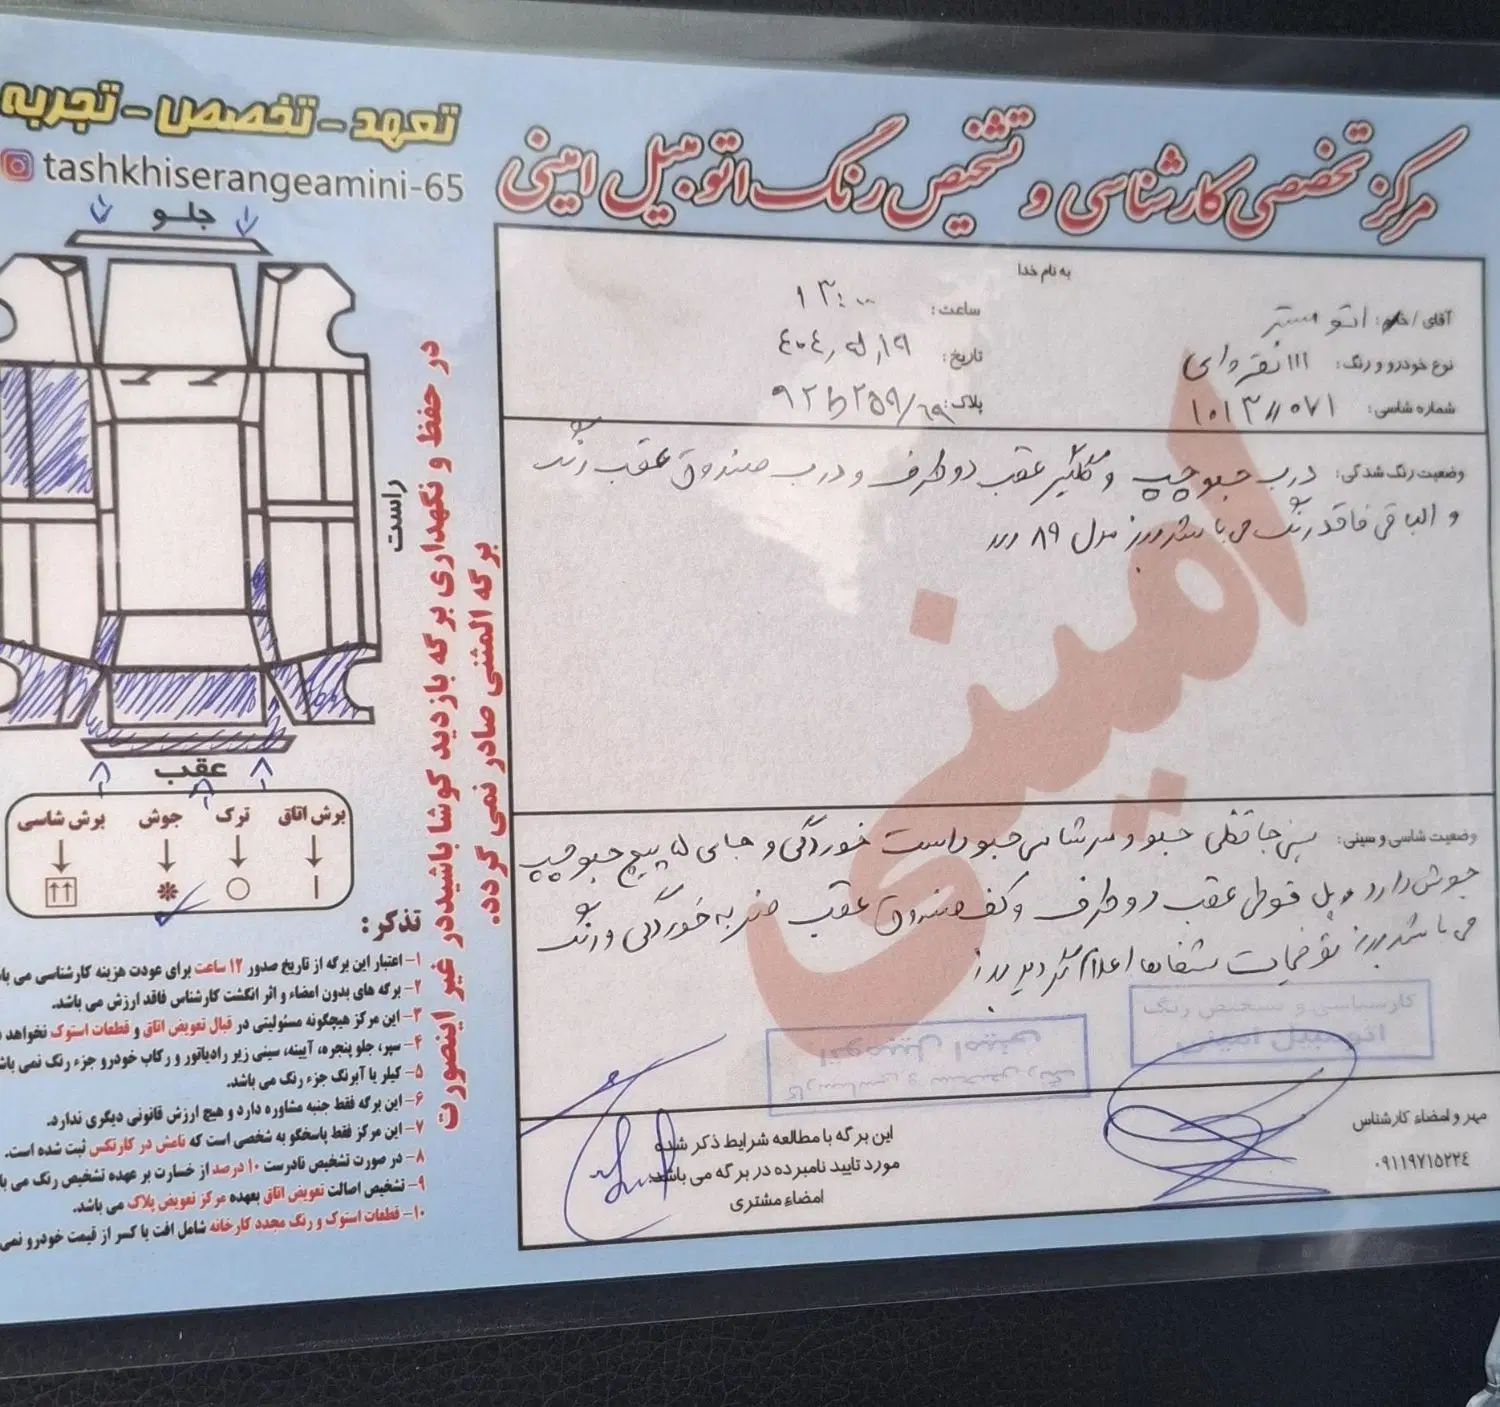 تعهد - تخصص - تجربه
tashkhiserangeamini-65
مرکز تخصصی کارشناسی و تشخیص رنگ اتومبیل امینی
به نام خدا
آقای / خانم: اتو مستر
ساعت: ۱۳:۰۰
نوع خودرو و رنگ: ۱۱۱ نقره ای
تاریخ: ۴۰۴٫۵٫۱۹
شماره شاسی: ۱۰۱۳۱۱۰۷۱
پلاک: ۹۲ط۲۵۹/۶۹
وضعیت رنگ شدگی: درب جلو چپ و گلگیر عقب دو طرف و درب صندوق عقب رنگ
و الباقی فاقد رنگ می باشد مدل ۸۹
وضعیت شاسی و سینی: سینی جلو و سر شاسی جلو راست خوردگی و جای ۵ پیچ جلو چپ
جوش دارد و پل قوطی عقب دو طرف و کف صندوق عقب ضربه خوردگی و رنگ
می باشد توضیحات شفاها اعلام گردید
امینی
کارشناسی و تشخیص رنگ
اتومبیل امینی
کارشناسی و تشخیص رنگ
اتومبیل امینی
مهر و امضاء کارشناس
۰۹۱۱۹۷۱۵۲۲۴
این برگه با مطالعه شرایط ذکر شده
مورد تایید نامبرده در برگه می باشد.
امضاء مشتری
جلو
راست
عقب
برش اتاق
ترک
جوش
برش شاسی
در حفظ و نگهداری برگه بازدید کوشا باشید در غیر اینصورت
برگه المثنی صادر نمی گردد.
تذکر:
۱- اعتبار این برگه از تاریخ صدور ۱۲ ساعت برای عودت هزینه کارشناسی می با
۲- برگه های بدون امضاء و اثر انگشت کارشناس فاقد ارزش می باشد.
۳- این مرکز هیچگونه مسئولیتی در قبال تعویض اتاق و قطعات استوک نخواهد
۴- سپر، جلو پنجره، آیینه، سینی زیر رادیاتور و رکاب خودرو جزء رنگ نمی باش
۵- کیلر یا آبرنگ جزء رنگ می باشد.
۶- این برگه فقط جنبه مشاوره دارد و هیچ ارزش قانونی دیگری ندارد.
۷- این مرکز فقط پاسخگو به شخصی است که نامش در کارتکس ثبت شده است.
۸- در صورت تشخیص نادرست ۱۰ درصد از خسارت بر عهده تشخیص رنگ می با
۹- تشخیص اصالت تعویض اتاق بعهده مرکز تعویض پلاک می باشد.
۱۰- قطعات استوک و رنگ مجدد کارخانه شامل افت یا کسر از قیمت خودرو نمی